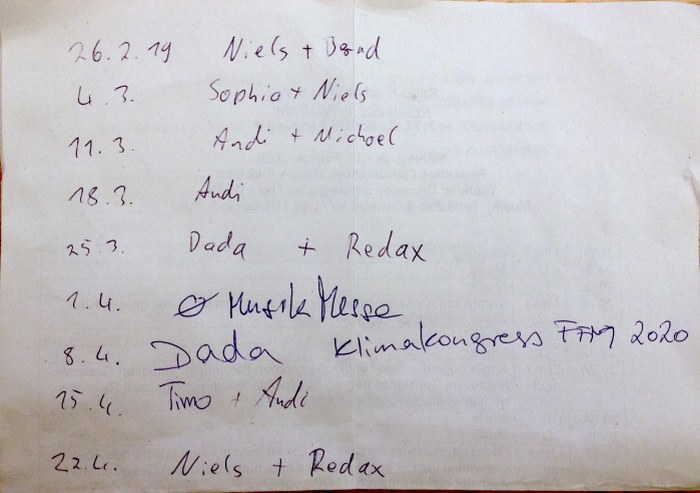 26.2.19 Niels + Bernd
4.3. Sophia + Niels
11.3. Andi + Michael
18.3. Andi
25.3. Dada + Redax
1.4. Ø Musik Messe
8.4. Dada Klimakongress FFM 2020
15.4. Timo + Andi
22.4. Niels + Redax